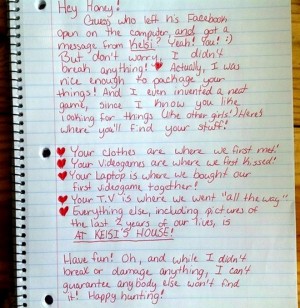 Hey Honey!
Guess who left his Facebook
open on the computer, and got a
message from Keisi? Yeah! You! :)
But don't worry, I didn't
break anything! ♥ Actually, I was
nice enough to package your
things! And I even invented a neat
game, since I know you like
looking for things (like other girls! Here's
where you'll find your stuff!
♥ Your clothes are where we first met!
♥ Your Videogames are where we first kissed!
♥ Your Laptop is where we bought our
first videogame together!
♥ Your T.V is where we went "all the way".
♥ Everything else, including pictures of
the last 2 years of our lives, is
AT KEISI'S HOUSE!
Have fun! Oh, and while I didn't
break or damage anything, I can't
guarantee anybody else won't find
it! Happy hunting!